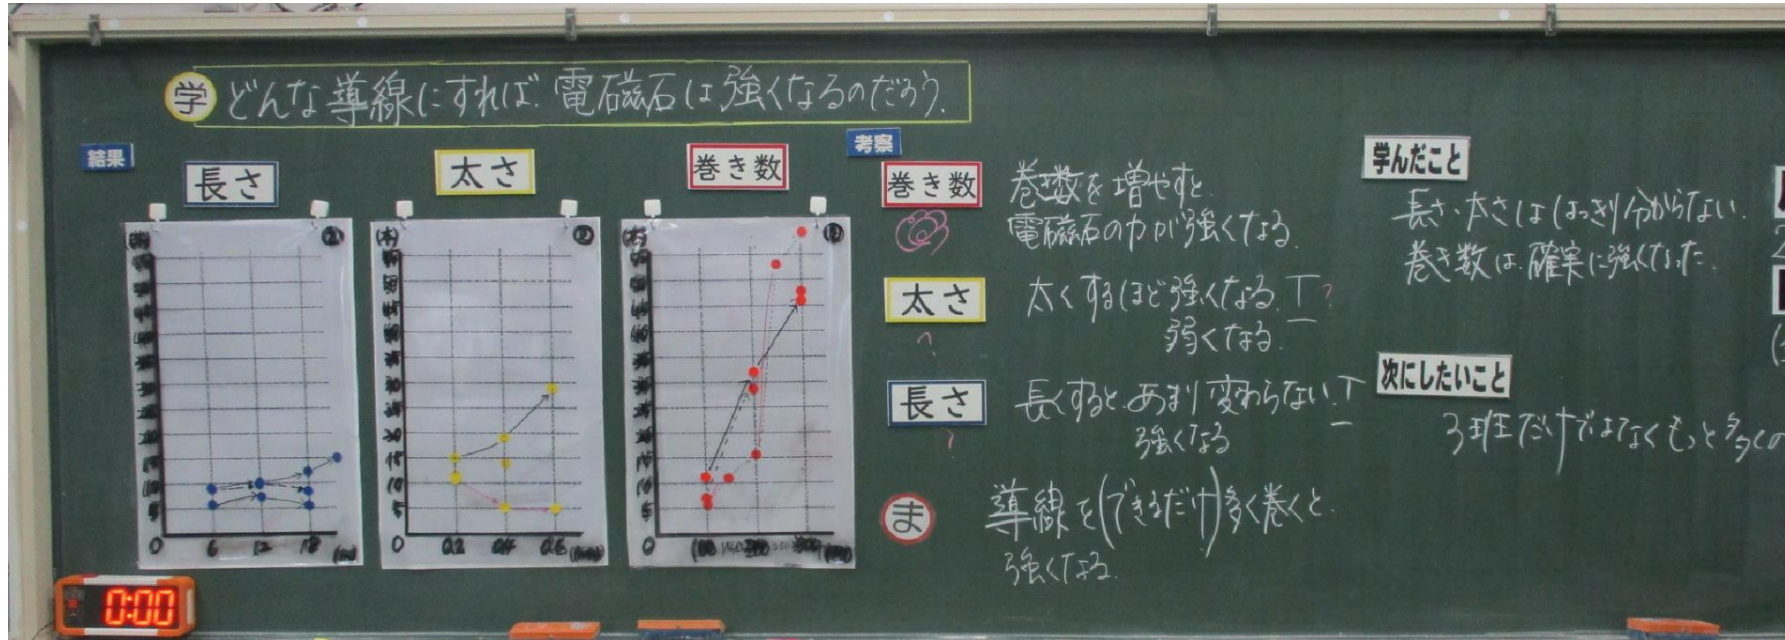 学 どんな導線にすれば、電磁石は強くなるのだろう。
結果
長さ
太さ
巻き数
0 6 12 18
0 0.2 0.4 0.6
0 100
考察
巻き数
巻き数を増やすと
電磁石の力が強くなる。
太さ
太くするほど強くなる。?
弱くなる。
?
長さ
長くすると、あまり変わらない。
強くなる
?
ま
導線を(できるだけ)多く巻くと、
強くなる。
学んだこと
長さ・太さははっきり分からない。
巻き数は、確実に強くなった。
次にしたいこと
3班だけではなくもっと多くの
0:00